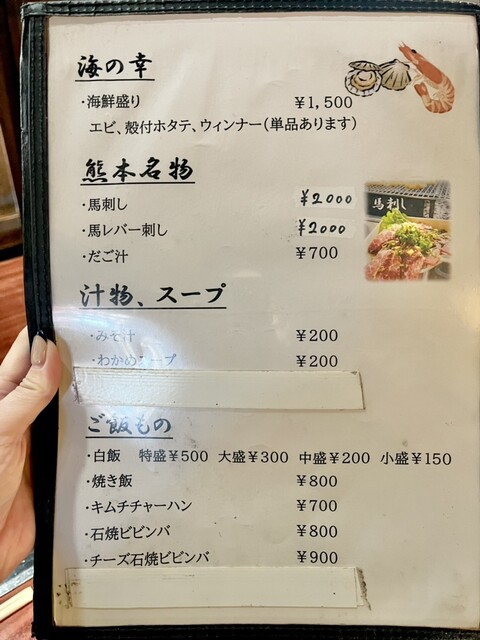 海の幸
・海鮮盛り ¥1,500
エビ、殻付ホタテ、ウィンナー(単品あります)
熊本名物
・馬刺し ¥2000
・馬レバー刺し ¥2000
・だご汁 ¥700
馬刺し
汁物、スープ
・みそ汁 ¥200
・わかめスープ ¥200
ご飯もの
・白飯 特盛¥500 大盛¥300 中盛¥200 小盛¥150
・焼き飯 ¥800
・キムチチャーハン ¥700
・石焼ビビンバ ¥800
・チーズ石焼ビビンバ ¥900